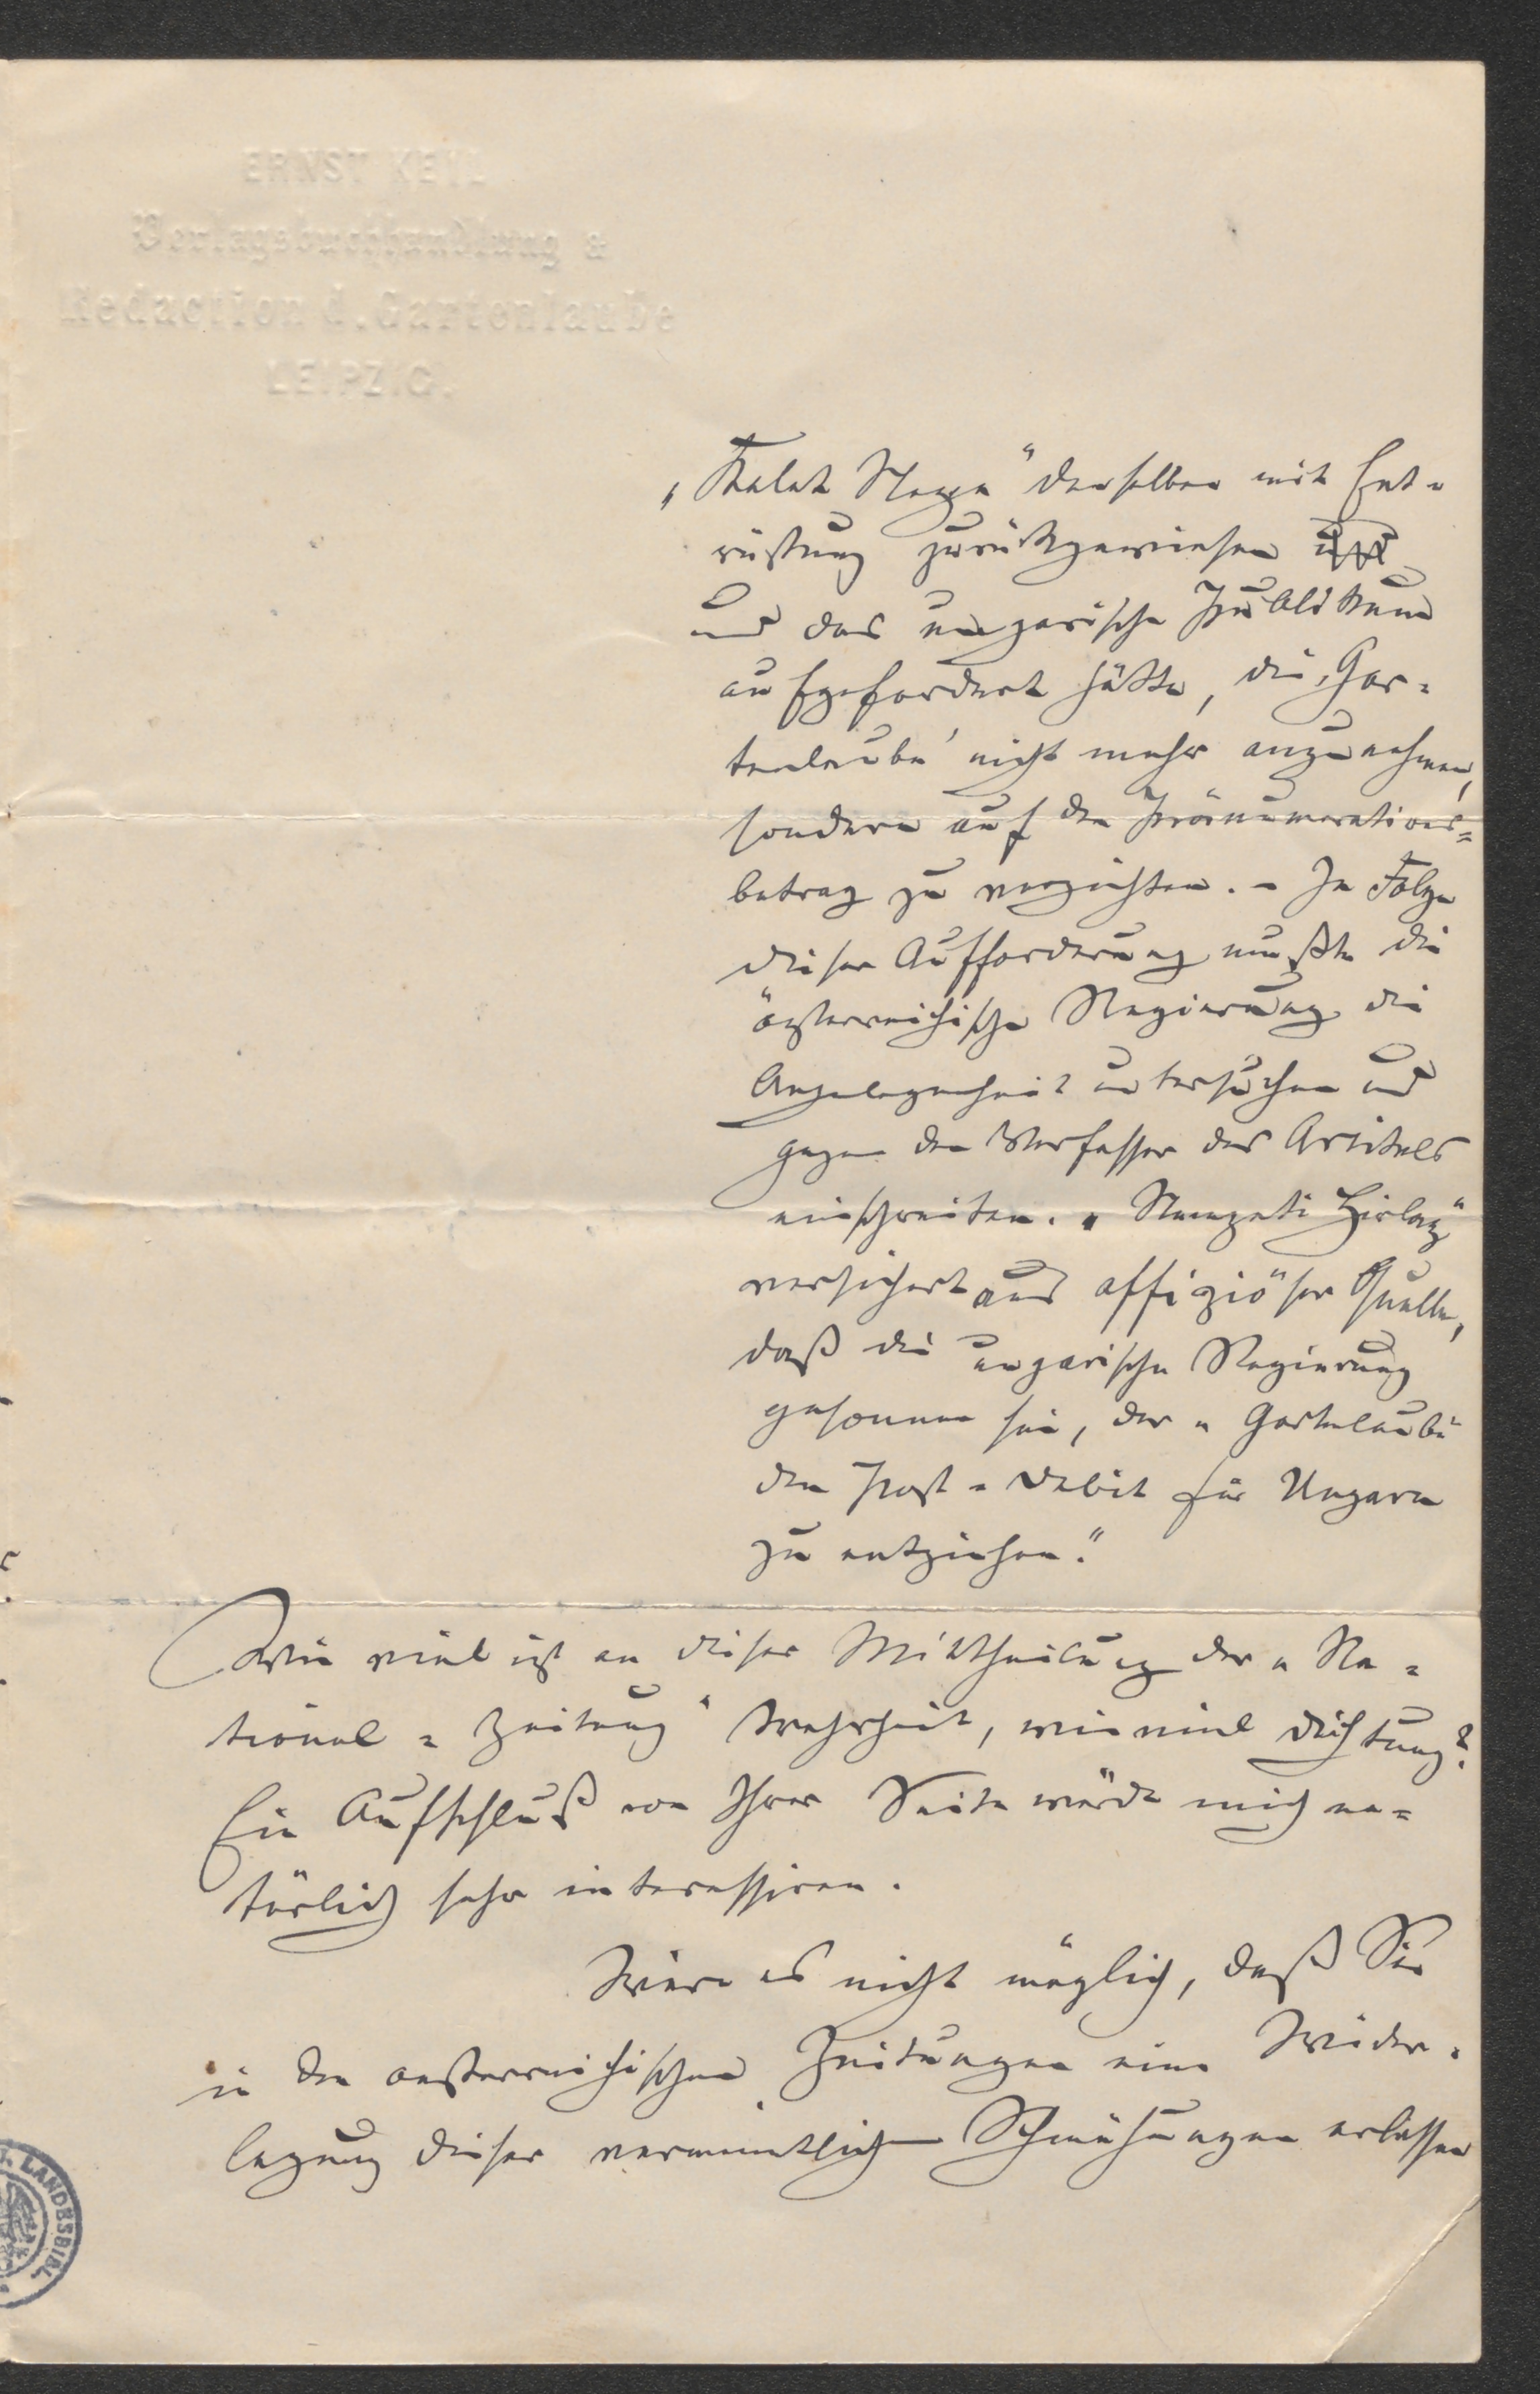 ERNST KEIL
Verlagsbuchhandlung &
Redaction d. Gartenlaube
LEIPZIG.
„Kelet Nepe“ denselben mit Ent-
rüstung zurückgewiesen und
und das ungarische Publikum
aufgefordert hätte, die ‚Gar-
tenlaube‘ nicht mehr anzunehmen,
sondern auf den Pränumerations-
betrag zu verzichten. – In Folge
dieser Aufforderung mußte die
österreichische Regierung die
Angelegenheit untersuchen und
gegen den Verfasser des Artikels
einschreiten. „Nemzeti Hirlap“
versichert aus offiziöser Quelle,
daß die ungarische Regierung
gesonnen sei, der „Gartenlaube“
den Post-Debit für Ungarn
zu entziehen.“
Wie viel ist an dieser Mittheilung der „Na-
tional-Zeitung“ Wahrheit, wie viel Dichtung?
Ein Aufschluß von Ihrer Seite würde mich na-
türlich sehr interessiren.
Wäre es nicht möglich, daß Sie
in den oesterreichischen Zeitungen eine Wider-
legung dieser vermeintlichen Schmähungen erlassen
LANDESBIBL.